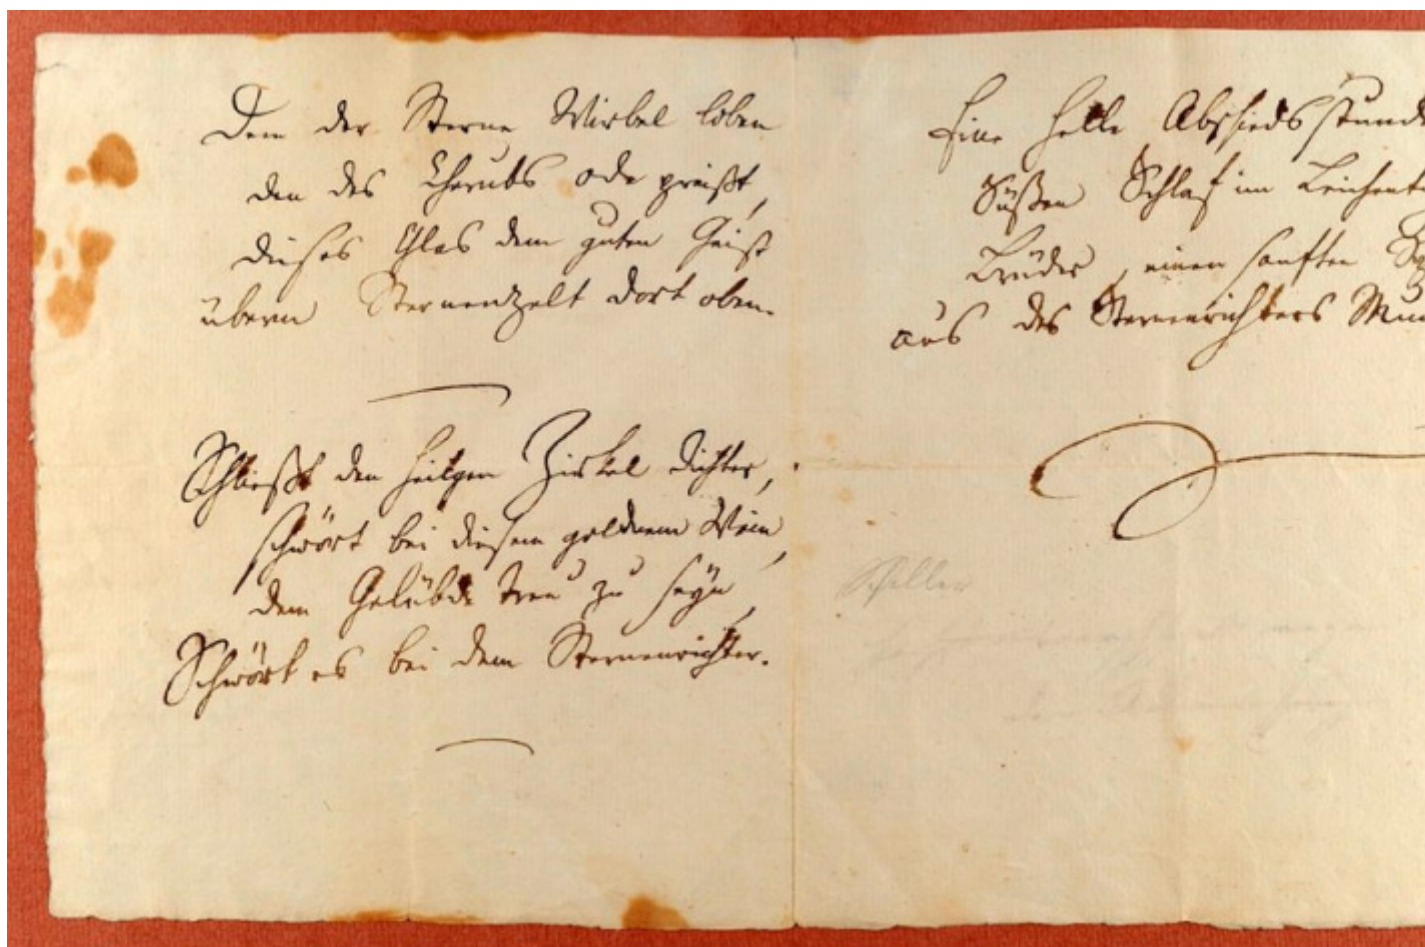 Dem der Sterne Wirbel loben
den des Cherubs Ode preißt,
dieses Glas dem guten Geist
übern Sternenzelt dort oben.
Schließt den heilgen Zirkel dichter,
schwört bei diesem goldnem Wein,
dem Gelübde treu zu seyn,
Schwört es bei dem Sternenrichter.
Eine helle Abschiedsstunde
Süßen Schlaf im
Brüder, einen sanften
aus des Sternenrichters
Schiller